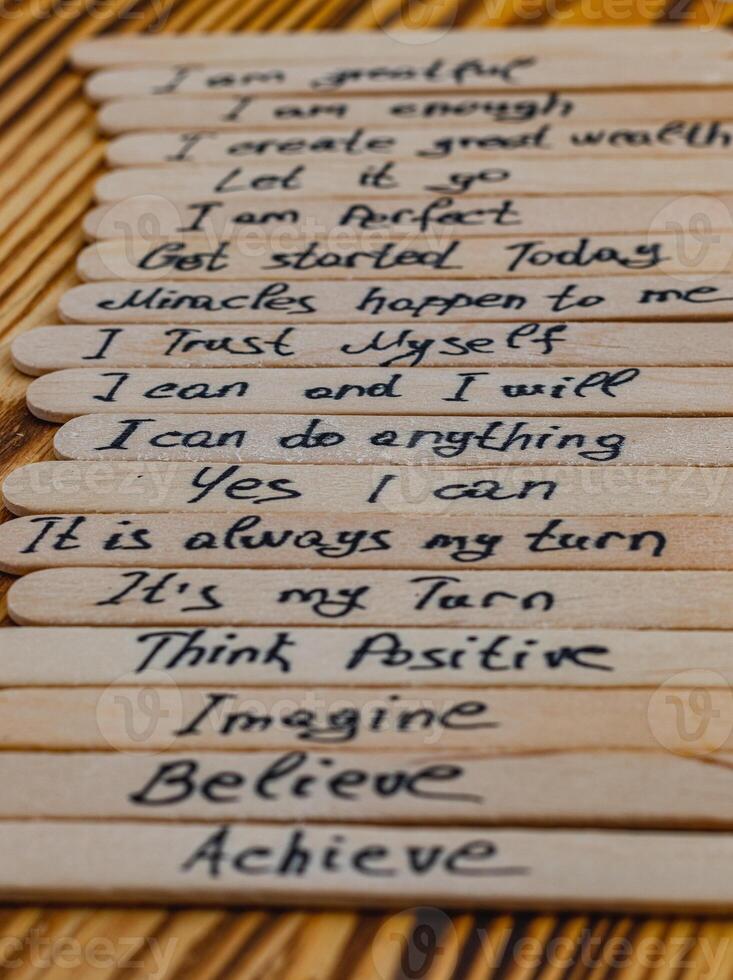 I am greatful
I am enough
I create great wealth
Let it go
I am Perfect
Get started Today
Miracles happen to me
I Trust Myself
I can and I will
I can do anything
Yes I can
It is always my turn
It's my Turn
Think Positive
Imagine
Believe
Achieve